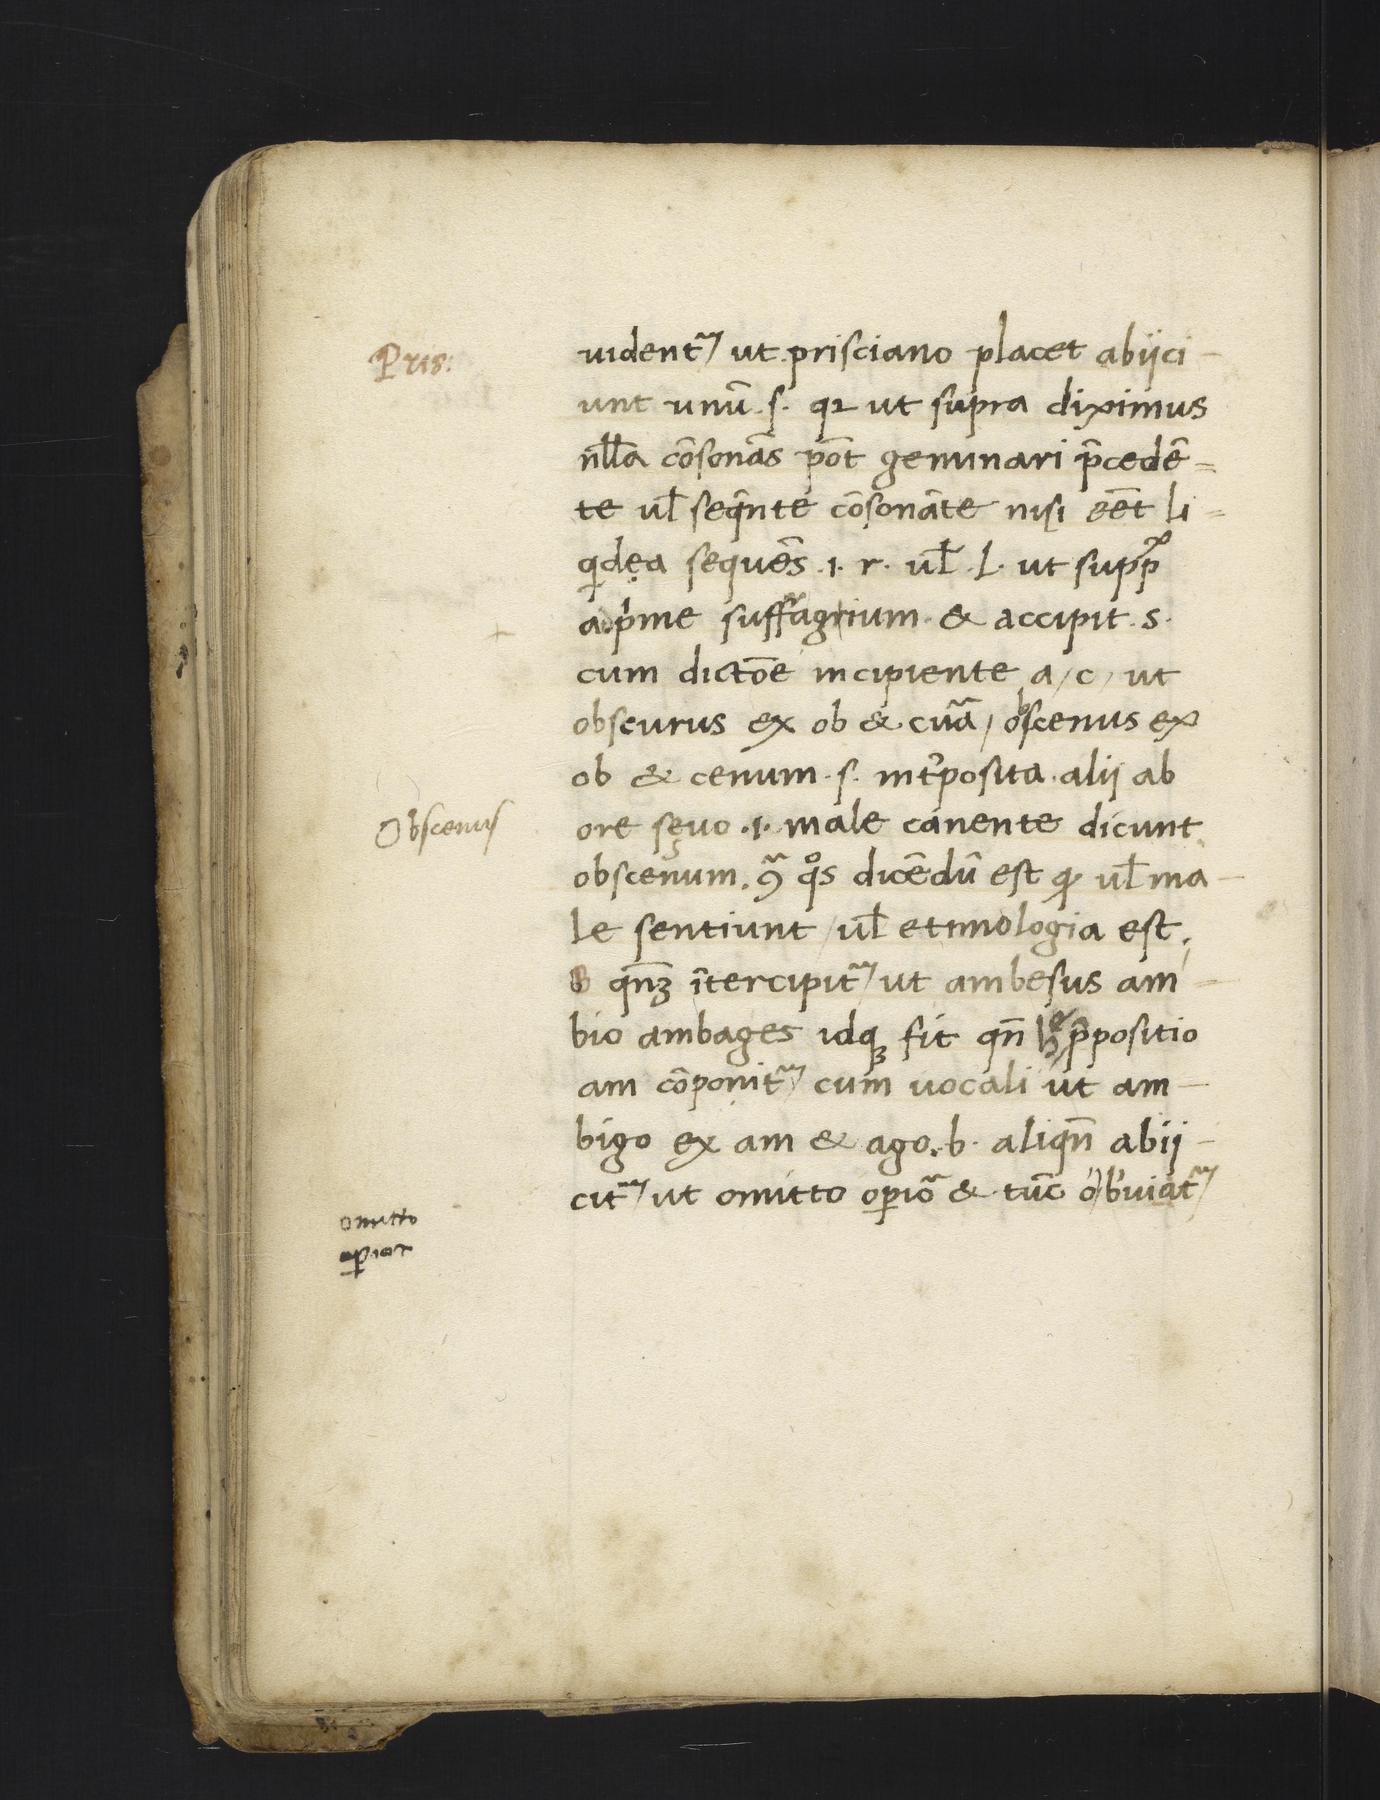 Pris:
uident᷑ ut prisciano placet abijci-
unt unū .s. qꝛ ut supra diximus
nl̄l̄a cōsonās pōt geminari p̄cedē=
te ul̄ seq̄nte cōsonāte nisi eēt li=
qidęa sequēs .i. r. ul̄ .l. ut
a p̄me suffragium. & accipit .s.
cum dictōe incipiente a/c/ut
obscurus ex ob & cura / obscenus ex
ob & cenum .s. int̓posita. alij ab
Obscenus
ore sęuo .i. male canente dicunt
obscenum. 9ᷓ qͦs dicēdū est ꝙ ul̄ ma-
le sentiunt / ul̄ etimologia est.
B qn̄qꝫ ītercipit᷑ ut ambesus am-
bio ambages idqꝫ fit qn̄ hęc p̄positio
am cōponit᷑ cum uocali ut am-
bigo ex am & ago. b. aliqn̄ abij-
cit᷑ ut omitto oꝑioᷓ & tūc o b̓uiat᷑
omitto
oꝑior